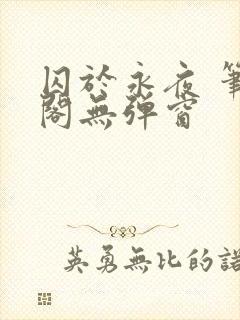 囚於永夜 筆
閣無彈窗
英勇無比的諾